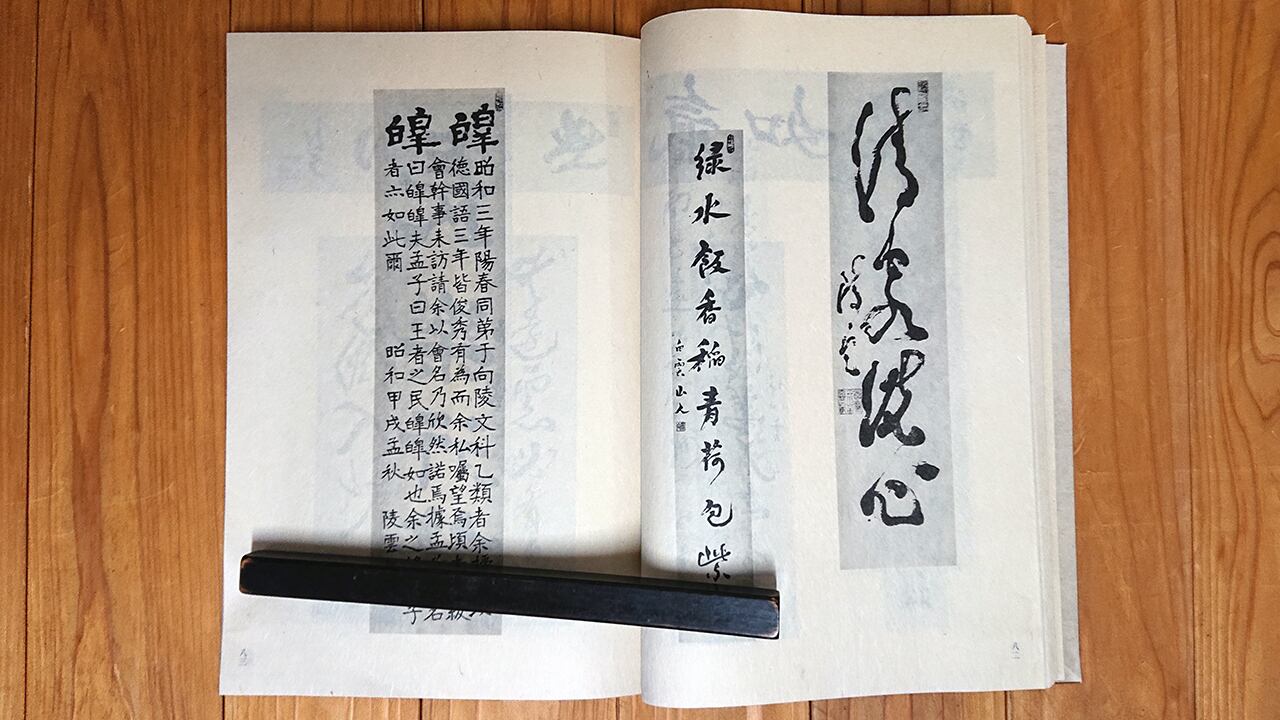 清家洗心
緑水飯香稻青荷包紫
白雲山人
八二
皥皥
昭和三年陽春同弟于向陵文科乙類者余
德國語三年皆俊秀有為而余私囑望焉頃
會幹事来訪請余以會名乃欣然諾焉據孟
曰皥皥夫孟子曰王者之民皥皥如也余之
者亦如此爾 昭和甲戌孟秋 陵雲
八三